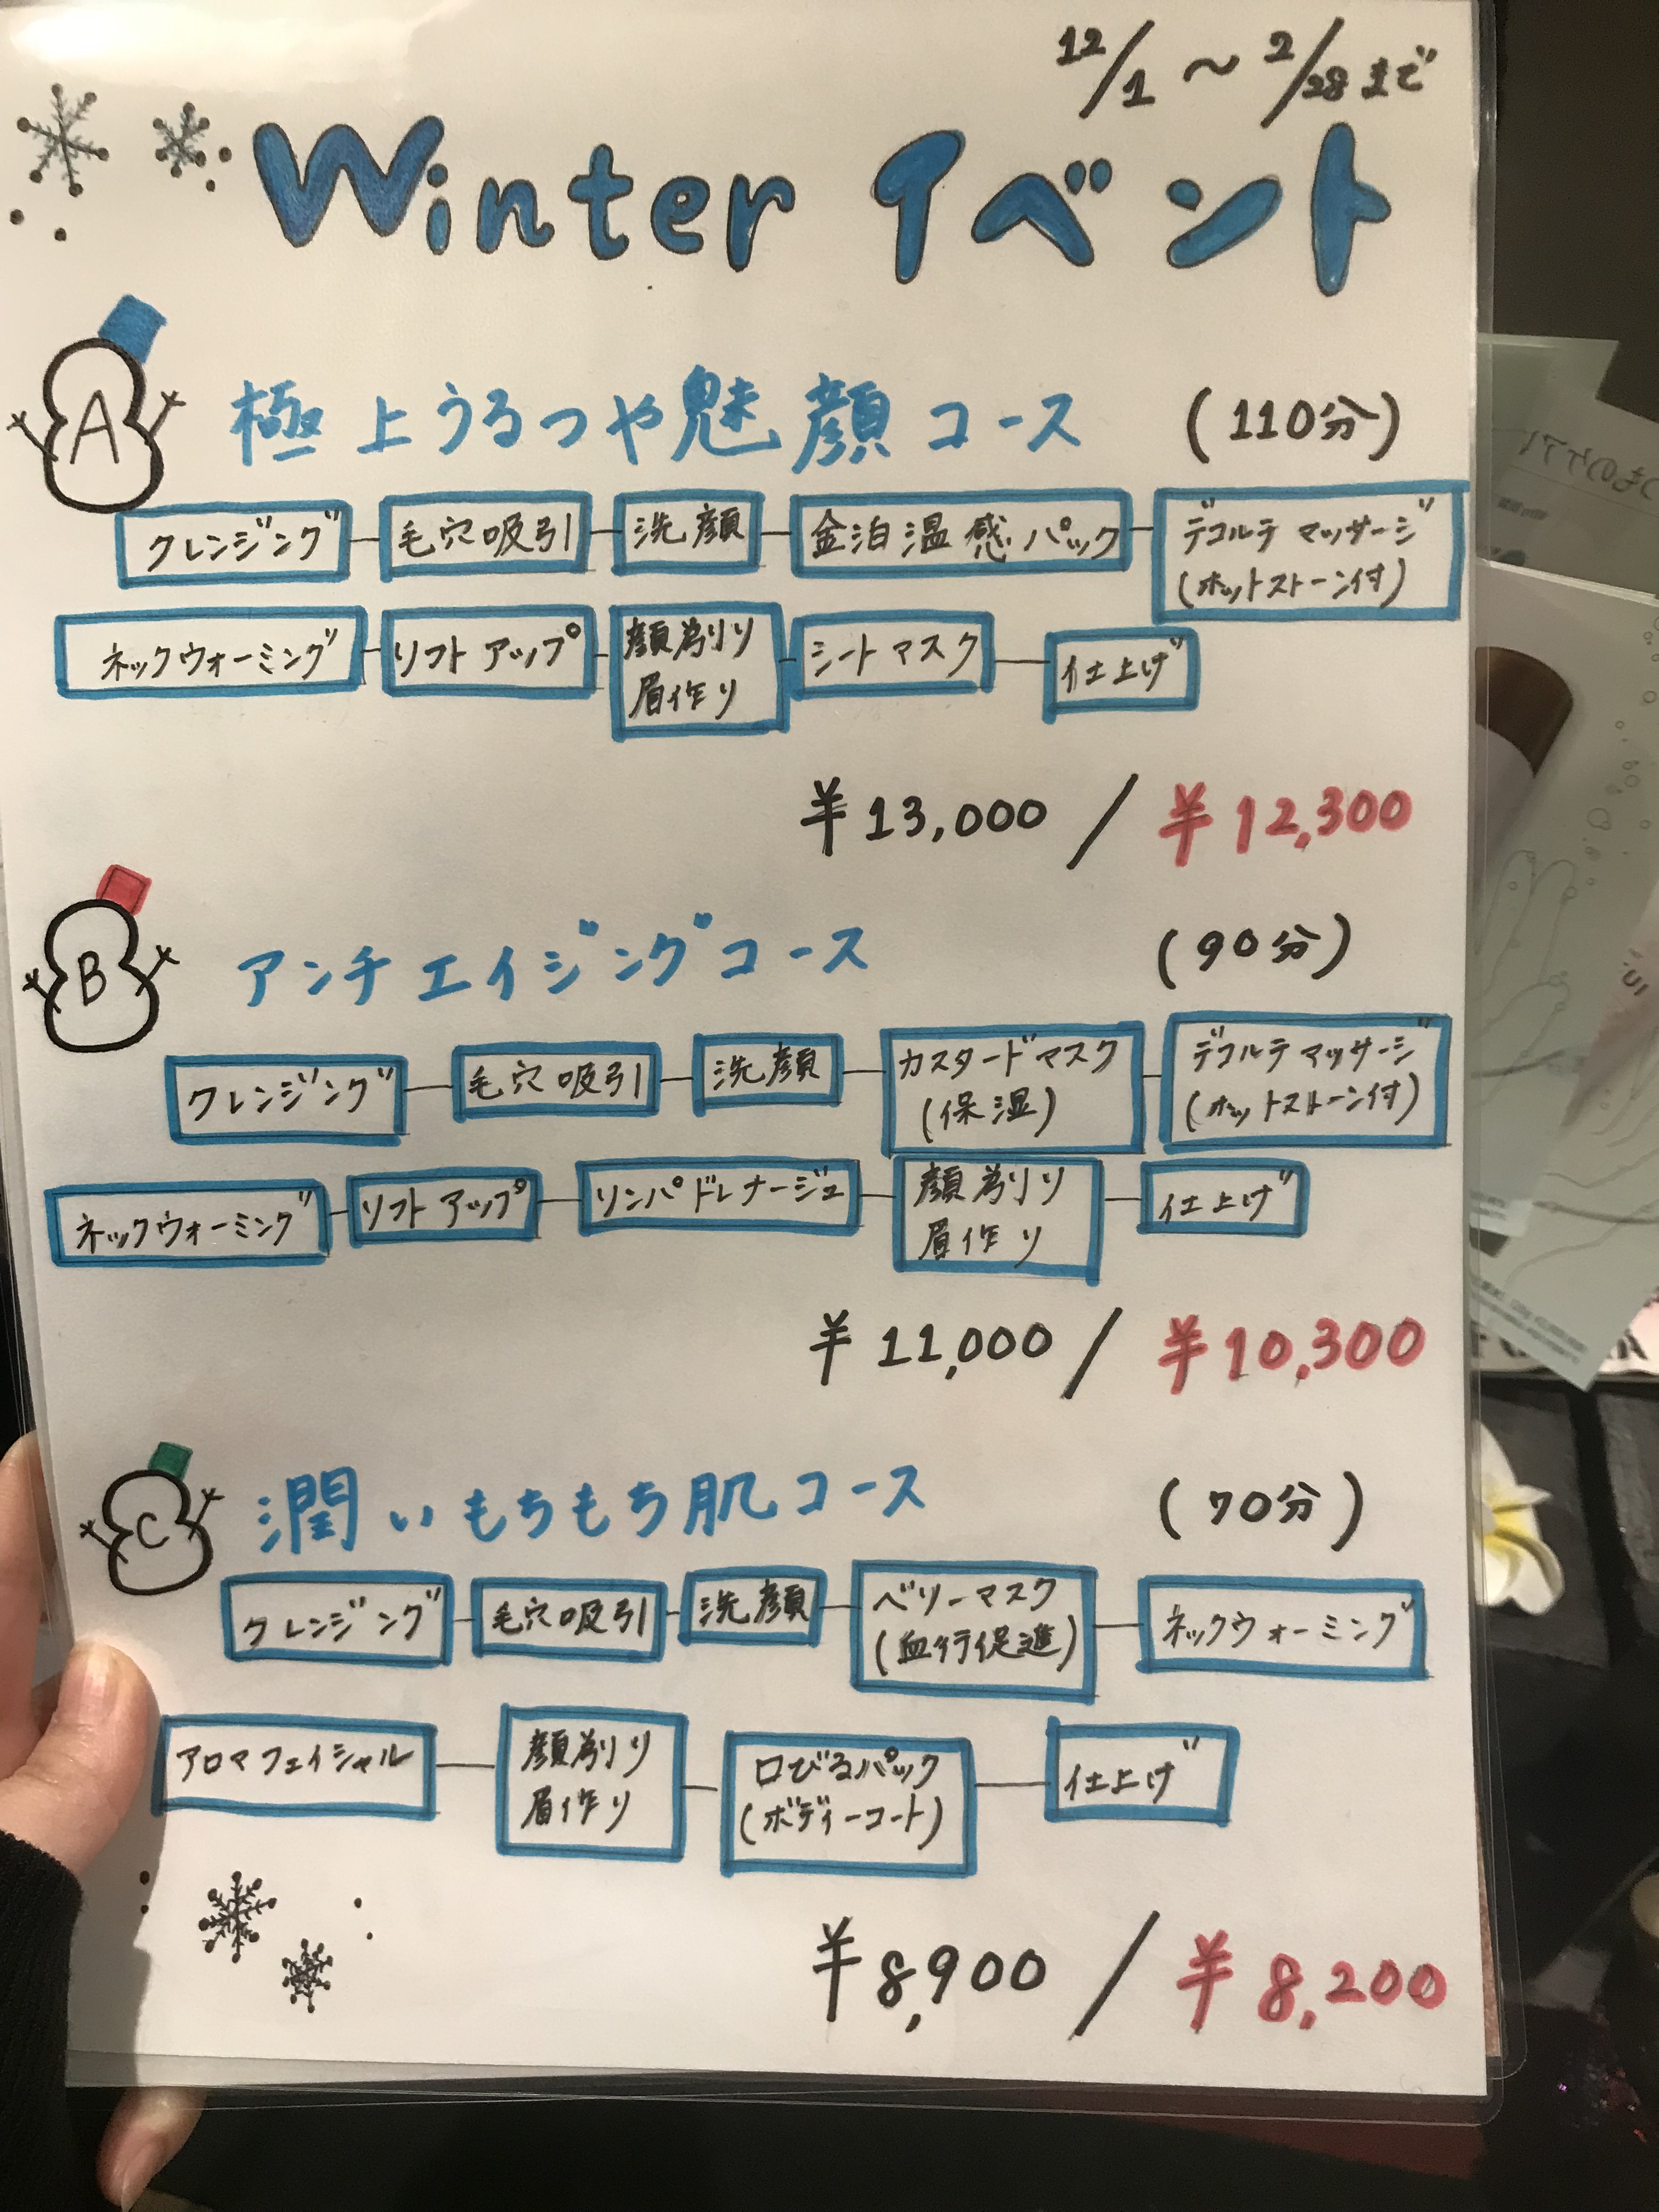 12/1 ～ 2/28 まで
Winter イベント
A 極上うるつや魅顔コース (110分)
クレンジング 毛穴吸引 洗顔 金泊温感パック デコルテマッサージ
(ホットストーン付)
ネックウォーミング リフトアップ 顔剃り シートマスク 仕上げ
眉作り
¥13,000 / ¥12,300
B アンチエイジングコース (90分)
クレンジング 毛穴吸引 洗顔 カスタードマスク デコルテマッサージ
(保湿) (ホットストーン付)
ネックウォーミング リフトアップ リンパドレナージュ 顔剃り 仕上げ
眉作り
¥11,000 / ¥10,300
C 潤いもちもち肌コース (70分)
クレンジング 毛穴吸引 洗顔 ベリーマスク ネックウォーミング
(血行促進)
アロマフェイシャル 顔剃り 口びるパック 仕上げ
眉作り (ボディーコート)
¥8,900 / ¥8,200